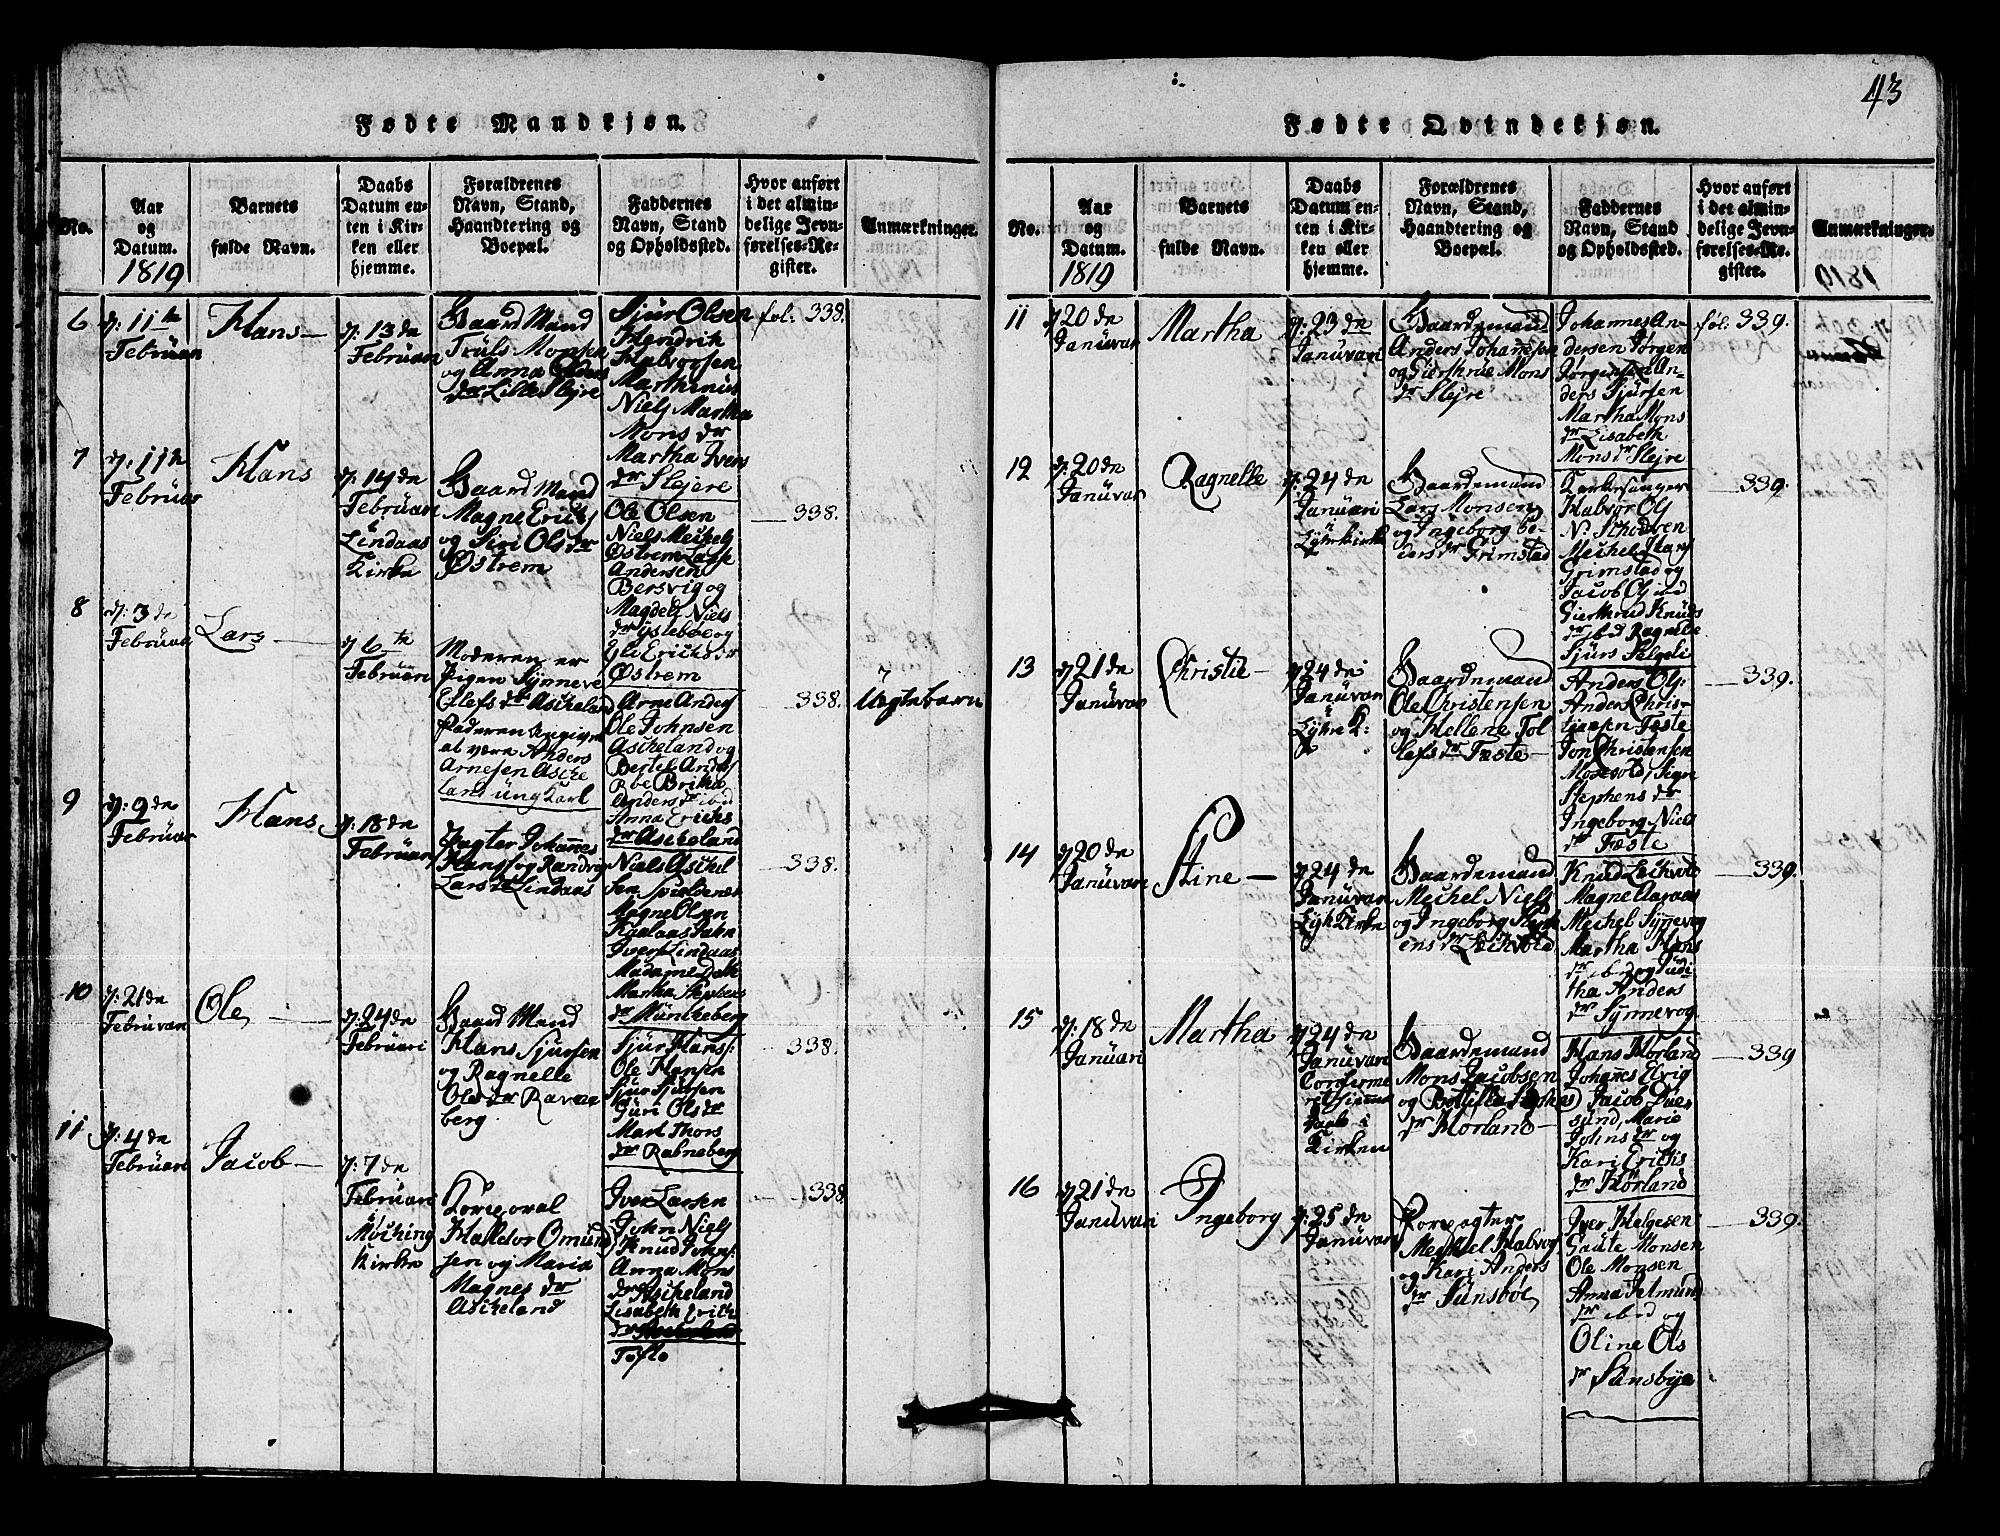 43
Fødte Mandkjøn.
No.
Aar
og
Datum.
1819
Barnets
fulde Navn.
Daabs
Datum en-
ten i Kir-
ken eller
hjemme.
Forældrenes
Navn, Stand,
Haandtering og
Boepæl.
Faddernes
Navn, Stand
og Opholdssted.
Hvor anført
i det almin-
delige Jevn-
førelses-Re-
gister.
Anmærkninger.
6
d: 11te
Februar
Hans
d: 13de
Februari
Gaard Mand
Truls Monsen
og Anna
dr Lille Slejre
Sjur Olsen
Hendrik
Halvorsen
Marthinus
Niels Martha
Mons dr
Martha Ivers
dr Slejere
fol: 338.
7
d: 11te
Februar
Hans
d: 14de
Februari
Lindaas
Kirke
Gaard Mand
Magne Ericks
og Siri Ols dr
Østrem
Ole Olsen
Niels Mechels
Østrem Lasse
Andersen
Bersvig og
Magdeli Niels
dr Ystebøe og
Ericks dr
Østrem
338.
8
d: 3de
Februar
Lars
d 6te
Februari
Moderen er
Pigen Synneve
Ellefs dr Ascheland
Faderen angives
at være Anders
Arnesen Asche
land ung Karl
Arne Anders
Ole Johnsen
Ascheland og
Bertel Anders
Roe Britha
Anders dr ibid
Anna Ericks
dr Ascheland
338.
Uægte barn
9
d: 9de
Februar
Hans
d: 18de
Februari
Pagter Johannes
Hans og Randvig
Lars dr Lindaas
Niels Aschel
sen Spieldenes
Magne Olsen
Kaalaas Jahn
Ivers Lindaas
Madame
Martha Stephens
dr Munckeberg
338.
10
d: 21de
Februar
Ole
d: 24de
Februari
Gaard Mand
Hans Sjursen
og Ragnelle
Ols dr Ravne
berg
Sjur Hans:
Ole Hansen
Sjur Sjursen
Guri Ols dr
Mart Thors
dr Rabneberg
338.
11
d: 4de
Februari
Jacob
d: 7de
Februari
Møching
Kirke
Corporal
Halldor Omund
sen og Maria
Magnes dr
Ascheland
Iver Larsen
John Niels
Knud John:
Anna Mons
dr Ascheland
Lisabeth Erichs
Toflo
338.
Fødte Qvindekjøn.
No.
Aar
og
Datum.
1819
Barnets
fulde Navn.
Daabs
Datum en-
ten i Kir-
ken eller
hjemme.
Forældrenes
Navn, Stand,
Haandtering og
Boepæl.
Faddernes
Navn, Stand
og Opholdsted.
Hvor anført
i det almin-
delige Jevn-
førelses-Re-
gister.
Anmærkninger.
11
d 20de
Januvar
Martha
d: 23de
Januvari
Gaardemand
Anders Johannesen
og Gierthrue Mons
dr Slejre
Johannes An-
dersen Jørgen
Jørgensen An-
ders Sjursen
Martha Mons
dr Lisabeth
Mons dr Slejre
fol: 339.
12
d: 20de
Januvar
Ragnelle
d: 24de
Januvari
i
Lyhrkirke
Gaardemand
Lars Monsen
og Ingeborg
ders dr Grimstad
Kirkesanger
Halvor Ols
Ni
Mechel Hans
Grimstad og
Jacob Ols ibid
Gierthrud Knuds
dr ibid Ragnele
Sjurs
339.
13
d 21de
Januvar
Christie
d 24de
Januvar
Lyhre K:
Gaardemand
Ole Christensen
og Hellene Tol
lefs dr Feste
Anders Ols:
Anders Chris-
tiansen Feste
Jon Christensen
Mosevold, Signe
Stephens dr
Ingeborg Niels
dr Feste
339.
14
d 20de
Januvar
Stine
d 24de
Januvar
Lyhr Kirke
Gaardemand
Mechel Niels
og Ingeborg
ens dr Leikvold
Knud Leikvold
Magne
Mechel Synnevog
Martha Hans
dr ibid og Judi
tha Anders
dr Synnevog
339.
15
d: 18de
Januari
Martha
d 24de
Januvari
Conferme
Daab i
Kirken
Gaardemand
Mons Jacobsen
og Botilla Stephens
dr Morland
Hans Morland
Johannes
Jacob
sund, Marie
Johns dr og
Kari Ericks
dr Morland
339
16
d 21de
Januvari
Ingeborg
d: 25de
Januvari
Forpagter
Mechel Halvog
og Kari Anders
dr Sunsbøe
Iver Helgesen
Gaute Monsen
Ole Monsen
Anna
dr ibid og
Oline Ols
dr Sansbye
339.